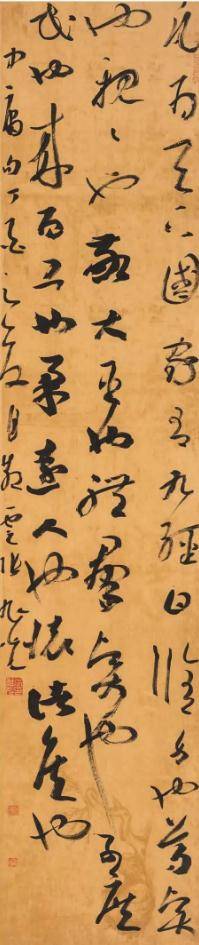 凡為天下國家有九經曰脩身也尊賢
也親々也敬大臣也體群臣也子庶
民也來百工也柔遠人也懷諸侯也
中庸句